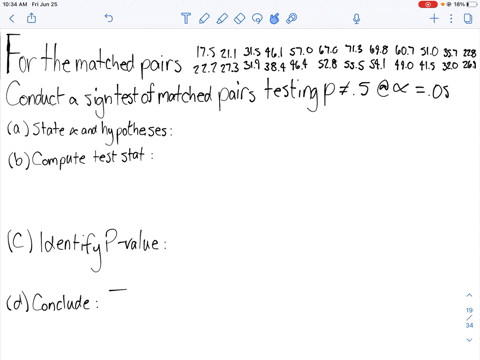 10:34 AM Fri Jun 25
18%
For the matched pairs 17.5 21.1 31.5 46.1 57.0 67.0 71.3 69.8 60.7 51.0 35.7 22.8
22.7 27.3 31.9 38.4 46.4 52.8 55.5 54.1 49.0 41.5 32.0 26.3
Conduct a sign test of matched pairs testing p ≠ .5 @ α = .05
(a) State α and hypotheses:
(b) Compute test stat:
(C) Identify P-value:
(d) Conclude:
19
/
34